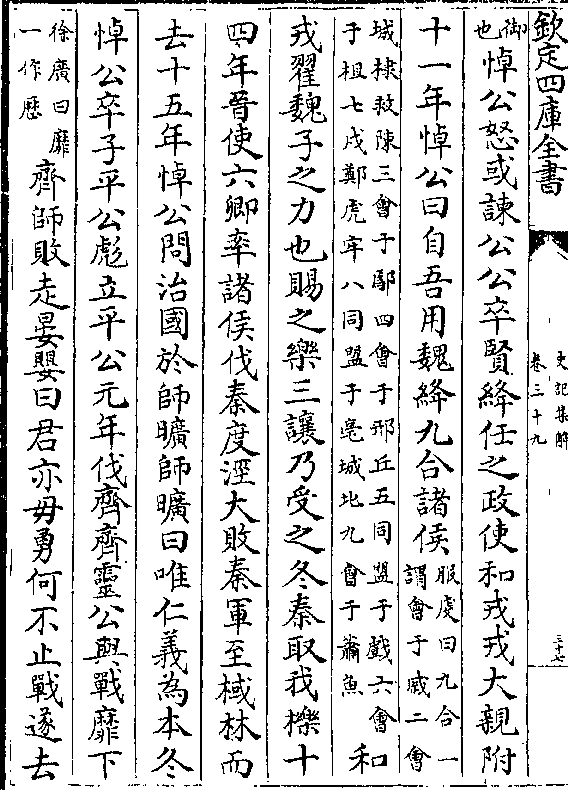 欽定四庫全書
史記集解
卷三十九
三十七
御
也
悼公怒或諫公公卒賢絳任之政使和戎戎大親附
十一年悼公曰自吾用魏絳九合諸侯
服䖍曰九合一
謂會于戚二會
城棣救陳三會于鄢四會于邢丘五同盟于戲六會
于柤七戍鄭虎牢八同盟于亳城北九會于蕭魚
和
戎翟魏子之力也賜之樂三讓乃受之冬秦取我櫟十
四年晉使六卿率諸侯伐秦度涇大敗秦軍至棫林而
去十五年悼公問治國於師曠師曠曰唯仁義為本冬
悼公卒子平公彪立平公元年伐齊齊靈公與戰靡下
徐廣曰靡
一作歷
齊師敗走晏嬰曰君亦毋勇何不止戰遂去